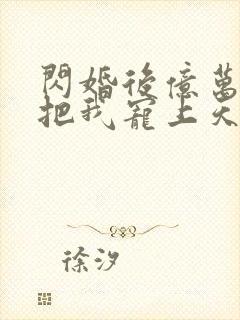 閃婚後億萬
把我寵上天
徐汐